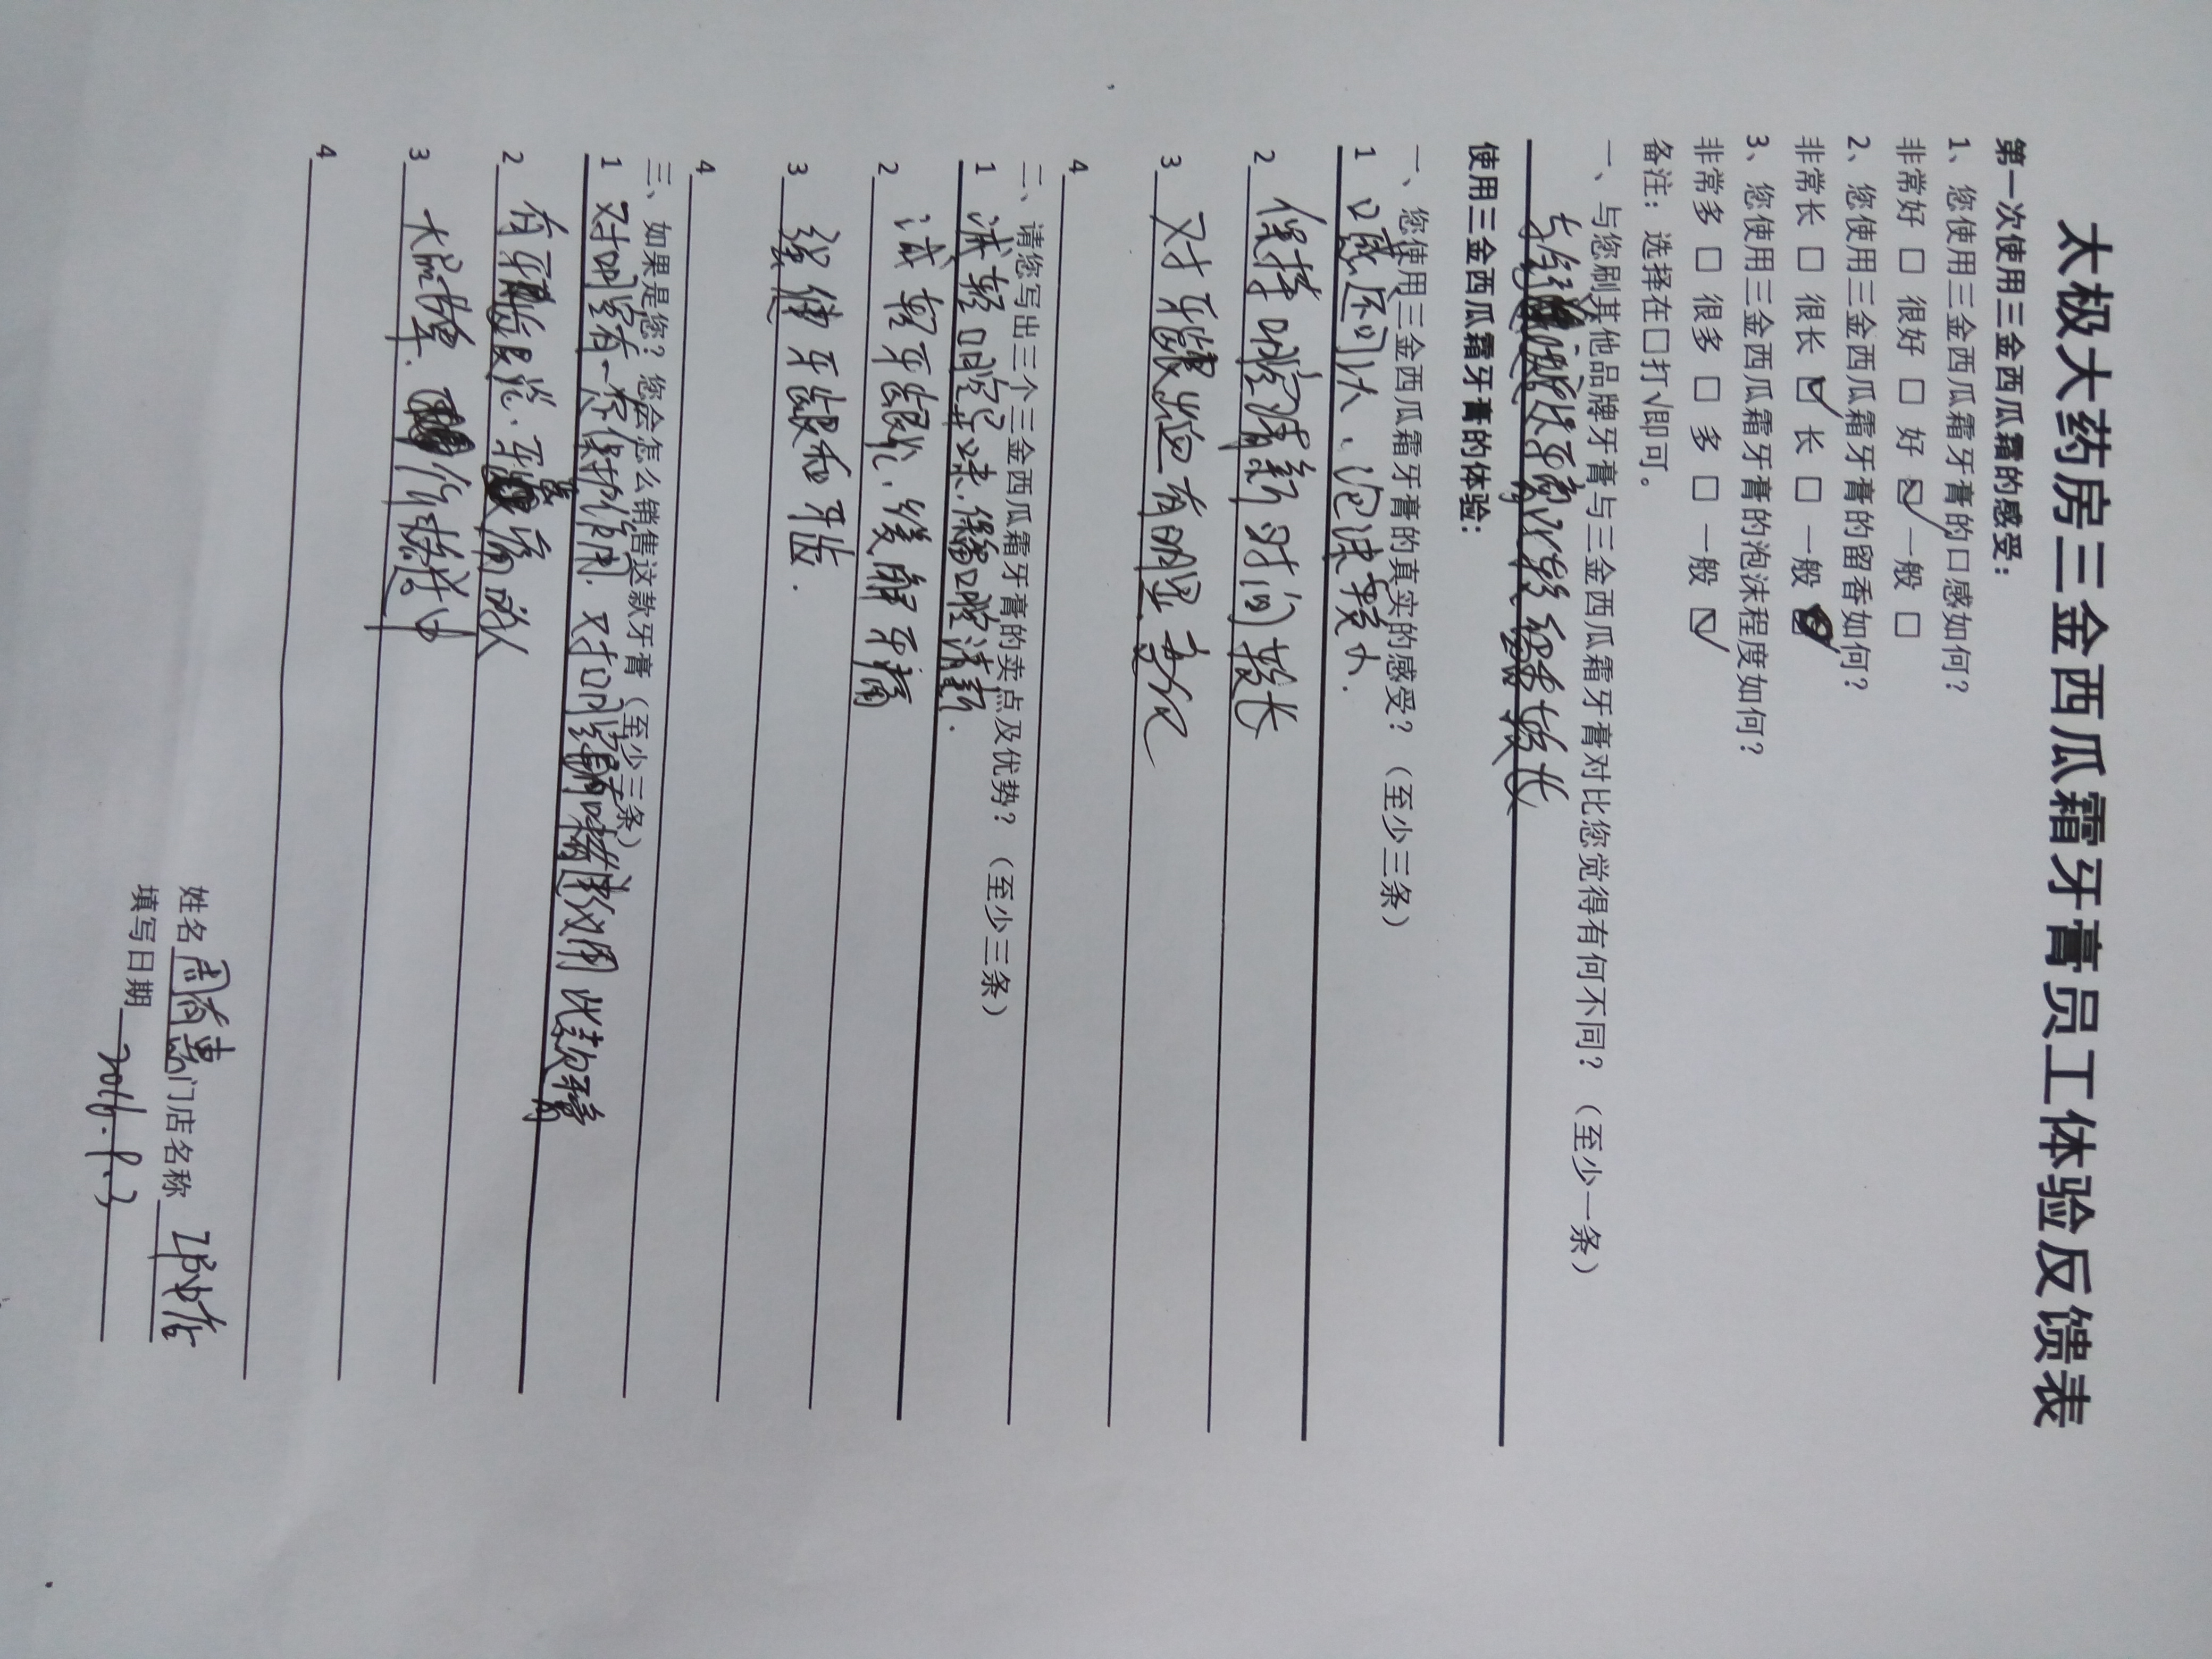 太极大药房三金西瓜霜牙膏员工体验反馈表
第一次使用三金西瓜霜的感受：
1、您使用三金西瓜霜牙膏的口感如何？
非常好 □ 很好 □ 好 ☑ 一般 □
2、您使用三金西瓜霜牙膏的留香如何？
非常长 □ 很长 ☑ 长 □ 一般
3、您使用三金西瓜霜牙膏的泡沫程度如何？
非常多 □ 很多 □ 多 □ 一般 ☑
备注：选择在□打√即可。
一、与您刷其他品牌牙膏与三金西瓜霜牙膏对比您觉得有何不同？（至少一条）
使用三金西瓜霜牙膏的体验：
一、您使用三金西瓜霜牙膏的真实的感受？（至少三条）
1 口感还可以、泡沫较少.
2 保持口腔清新时间较长
3 对牙龈炎有明显
4
二、请您写出三个三金西瓜霜牙膏的卖点及优势？（至少三条）
1 减轻口腔异味.保留口腔清新.
2 减轻牙龈炎.缓解牙痛
3 强健牙龈和牙齿.
4
三、如果是您？您会怎么销售这款牙膏（至少三条）
1 对口腔有一定保护作用.对口腔异味推荐用此款牙膏
2 有牙龈炎.牙痛的人
3
4
姓名 周有惠 门店名称
填写日期 2016.9.3